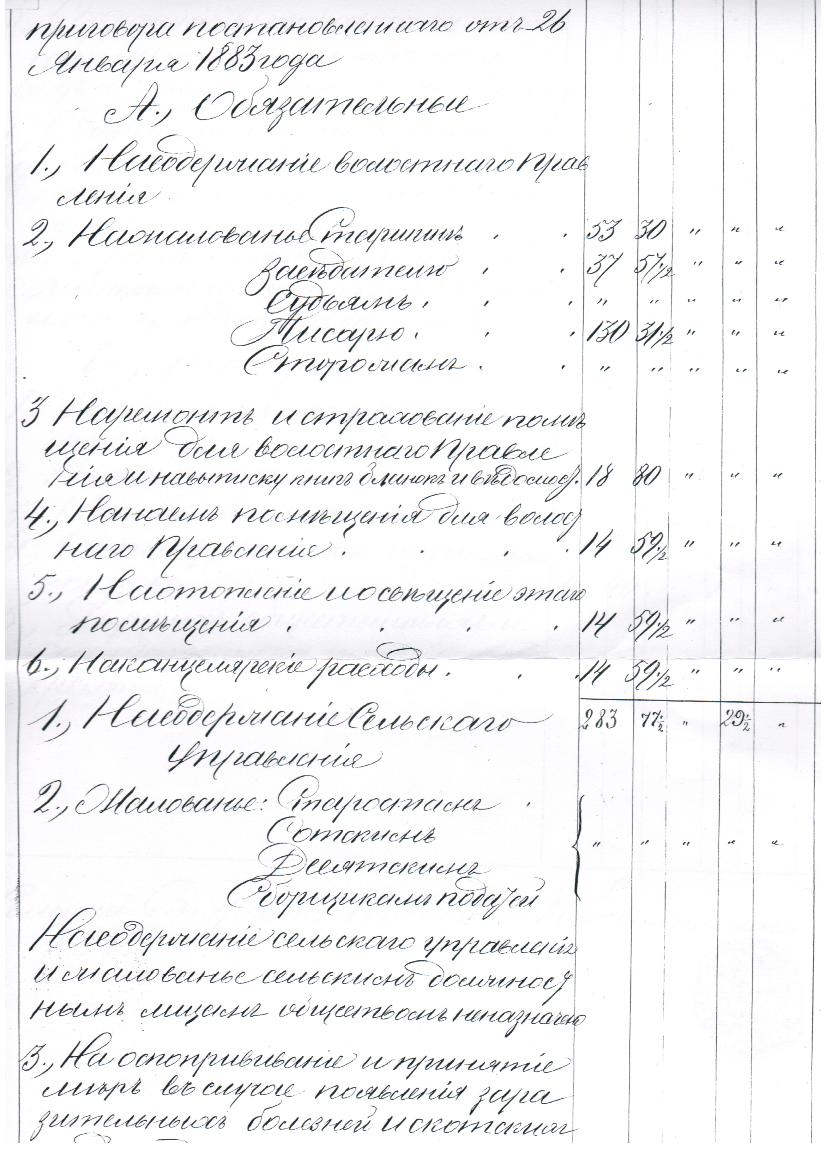 приговора постановленнаго отъ 26
Января 1883 года
А., Обязательные
1., На содержаніе волостнаго Прав
ленія
2., На жалованье Старшинѣ . . 53 30 " " "
Засѣдателю . . 37 57 1/2 " " "
Судьямъ . . . " " " " "
Писарю . . . 130 31 1/2 " " "
Сторожамъ . . " " " " "
3 На ремонтъ и страхованіе помѣ
щенія для волостнаго Правле
нія и на выписку книгъ бланокъ и вѣдомост. 18 80 " " "
4., На наемъ помѣщенія для волос
наго Правленія . . . . 14 59 1/2 " " "
5., На отопленіе и освѣщеніе этаго
помѣщенія . . . . 14 59 1/2 " " "
6., На канцелярскіе расходы . . . 14 59 1/2 " " "
1., На содержаніе Сельскаго 283 77 1/2 " 29 1/2 "
Управленія
2., Жалованье: Старостамъ .
Сотскимъ " " " " "
Десятскимъ
Сборщикамъ податей
На содержаніе сельскаго управленія
и жалованье сельскимъ должност
нымъ лицамъ обществомъ неназначено
3., На оспопрививаніе и принятіе
мѣръ въ случае появленія зара
зительныхъ болезней и скотскихъ